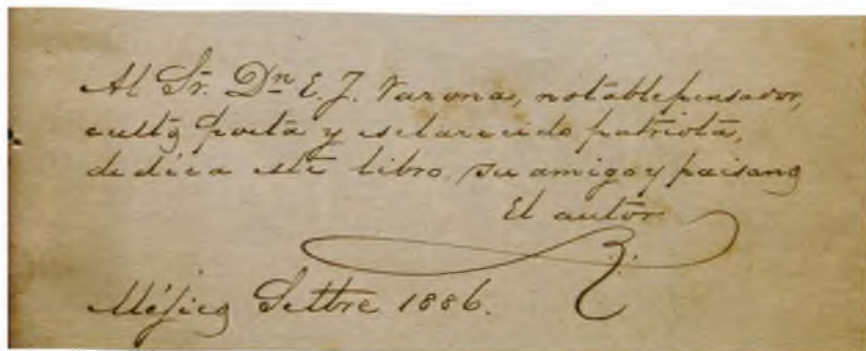 Al Sr. Dn E. J. Varona, notable pensador,
culto poeta y esclarecido patriota,
dedica este libro su amigo y paisano
El autor
Méjico Setbre 1886.